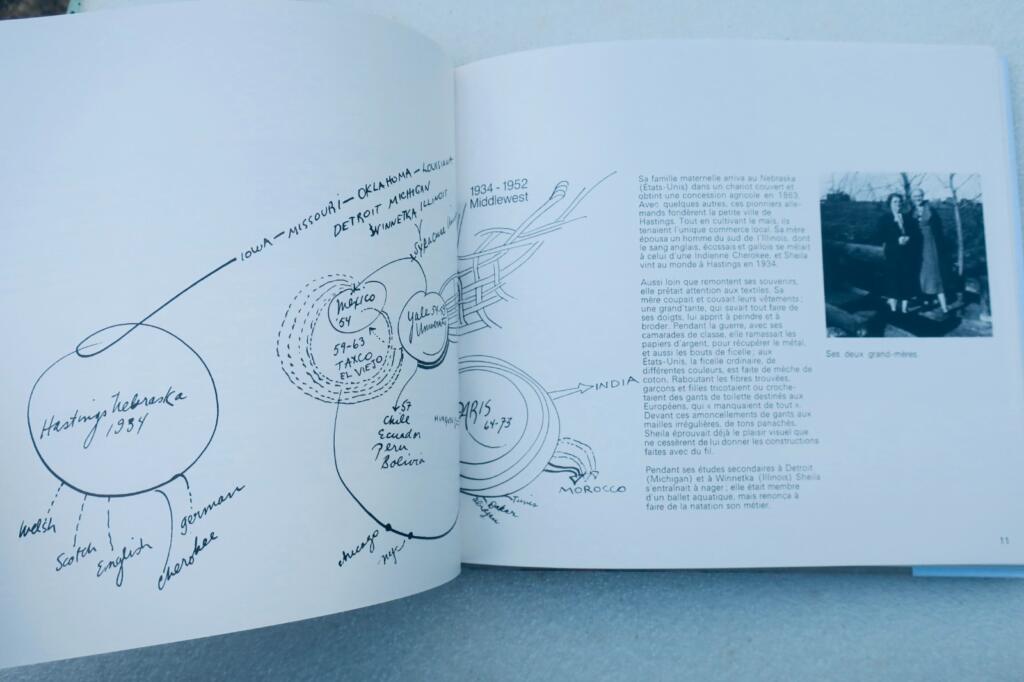 IOWA – MISSOURI – OKLAHOMA – LOUISIANA
DETROIT MICHIGAN
WINNETKA ILLINOIS
SYRACUSE
Hastings Nebraska
1934
Welsh
Scotch
English
Cherokee
german
Mexico
'54
Yale
University
59-63
TAXCO
EL VIEJO
57
Chile
Ecuador
Peru
Bolivia
chicago
NY
PARIS
64-73
INDIA
MOROCCO
Tunis
Dakar
1934 - 1952
Middlewest
Sa famille maternelle arriva au Nebraska
(États-Unis) dans un chariot couvert et
obtint une concession agricole en 1863.
Avec quelques autres, ces pionniers alle-
mands fondèrent la petite ville de
Hastings. Tout en cultivant le maïs, ils
tenaient l'unique commerce local. Sa mère
épousa un homme du sud de l'Illinois, dont
le sang anglais, écossais et gallois se mêlait
à celui d'une Indienne Cherokee, et Sheila
vint au monde à Hastings en 1934.
Aussi loin que remontent ses souvenirs,
elle prêtait attention aux textiles. Sa
mère coupait et cousait leurs vêtements ;
une grand'tante, qui savait tout faire de
ses doigts, lui apprit à peindre et à
broder. Pendant la guerre, avec ses
camarades de classe, elle ramassait les
papiers d'argent, pour récupérer le métal,
et aussi les bouts de ficelle ; aux
États-Unis, la ficelle ordinaire, de
différentes couleurs, est faite de mèche de
coton. Raboutant les fibres trouvées,
garçons et filles tricotaient ou croche-
taient des gants de toilette destinés aux
Européens, qui « manquaient de tout ».
Devant ces amoncellements de gants aux
mailles irrégulières, de tons panachés,
Sheila éprouvait déjà le plaisir visuel que
ne cessèrent de lui donner les constructions
faites avec du fil.
Pendant ses études secondaires à Detroit
(Michigan) et à Winnetka (Illinois) Sheila
s'entraînait à nager ; elle était membre
d'un ballet aquatique, mais renonça à
faire de la natation son métier.
Ses deux grand-mères
11